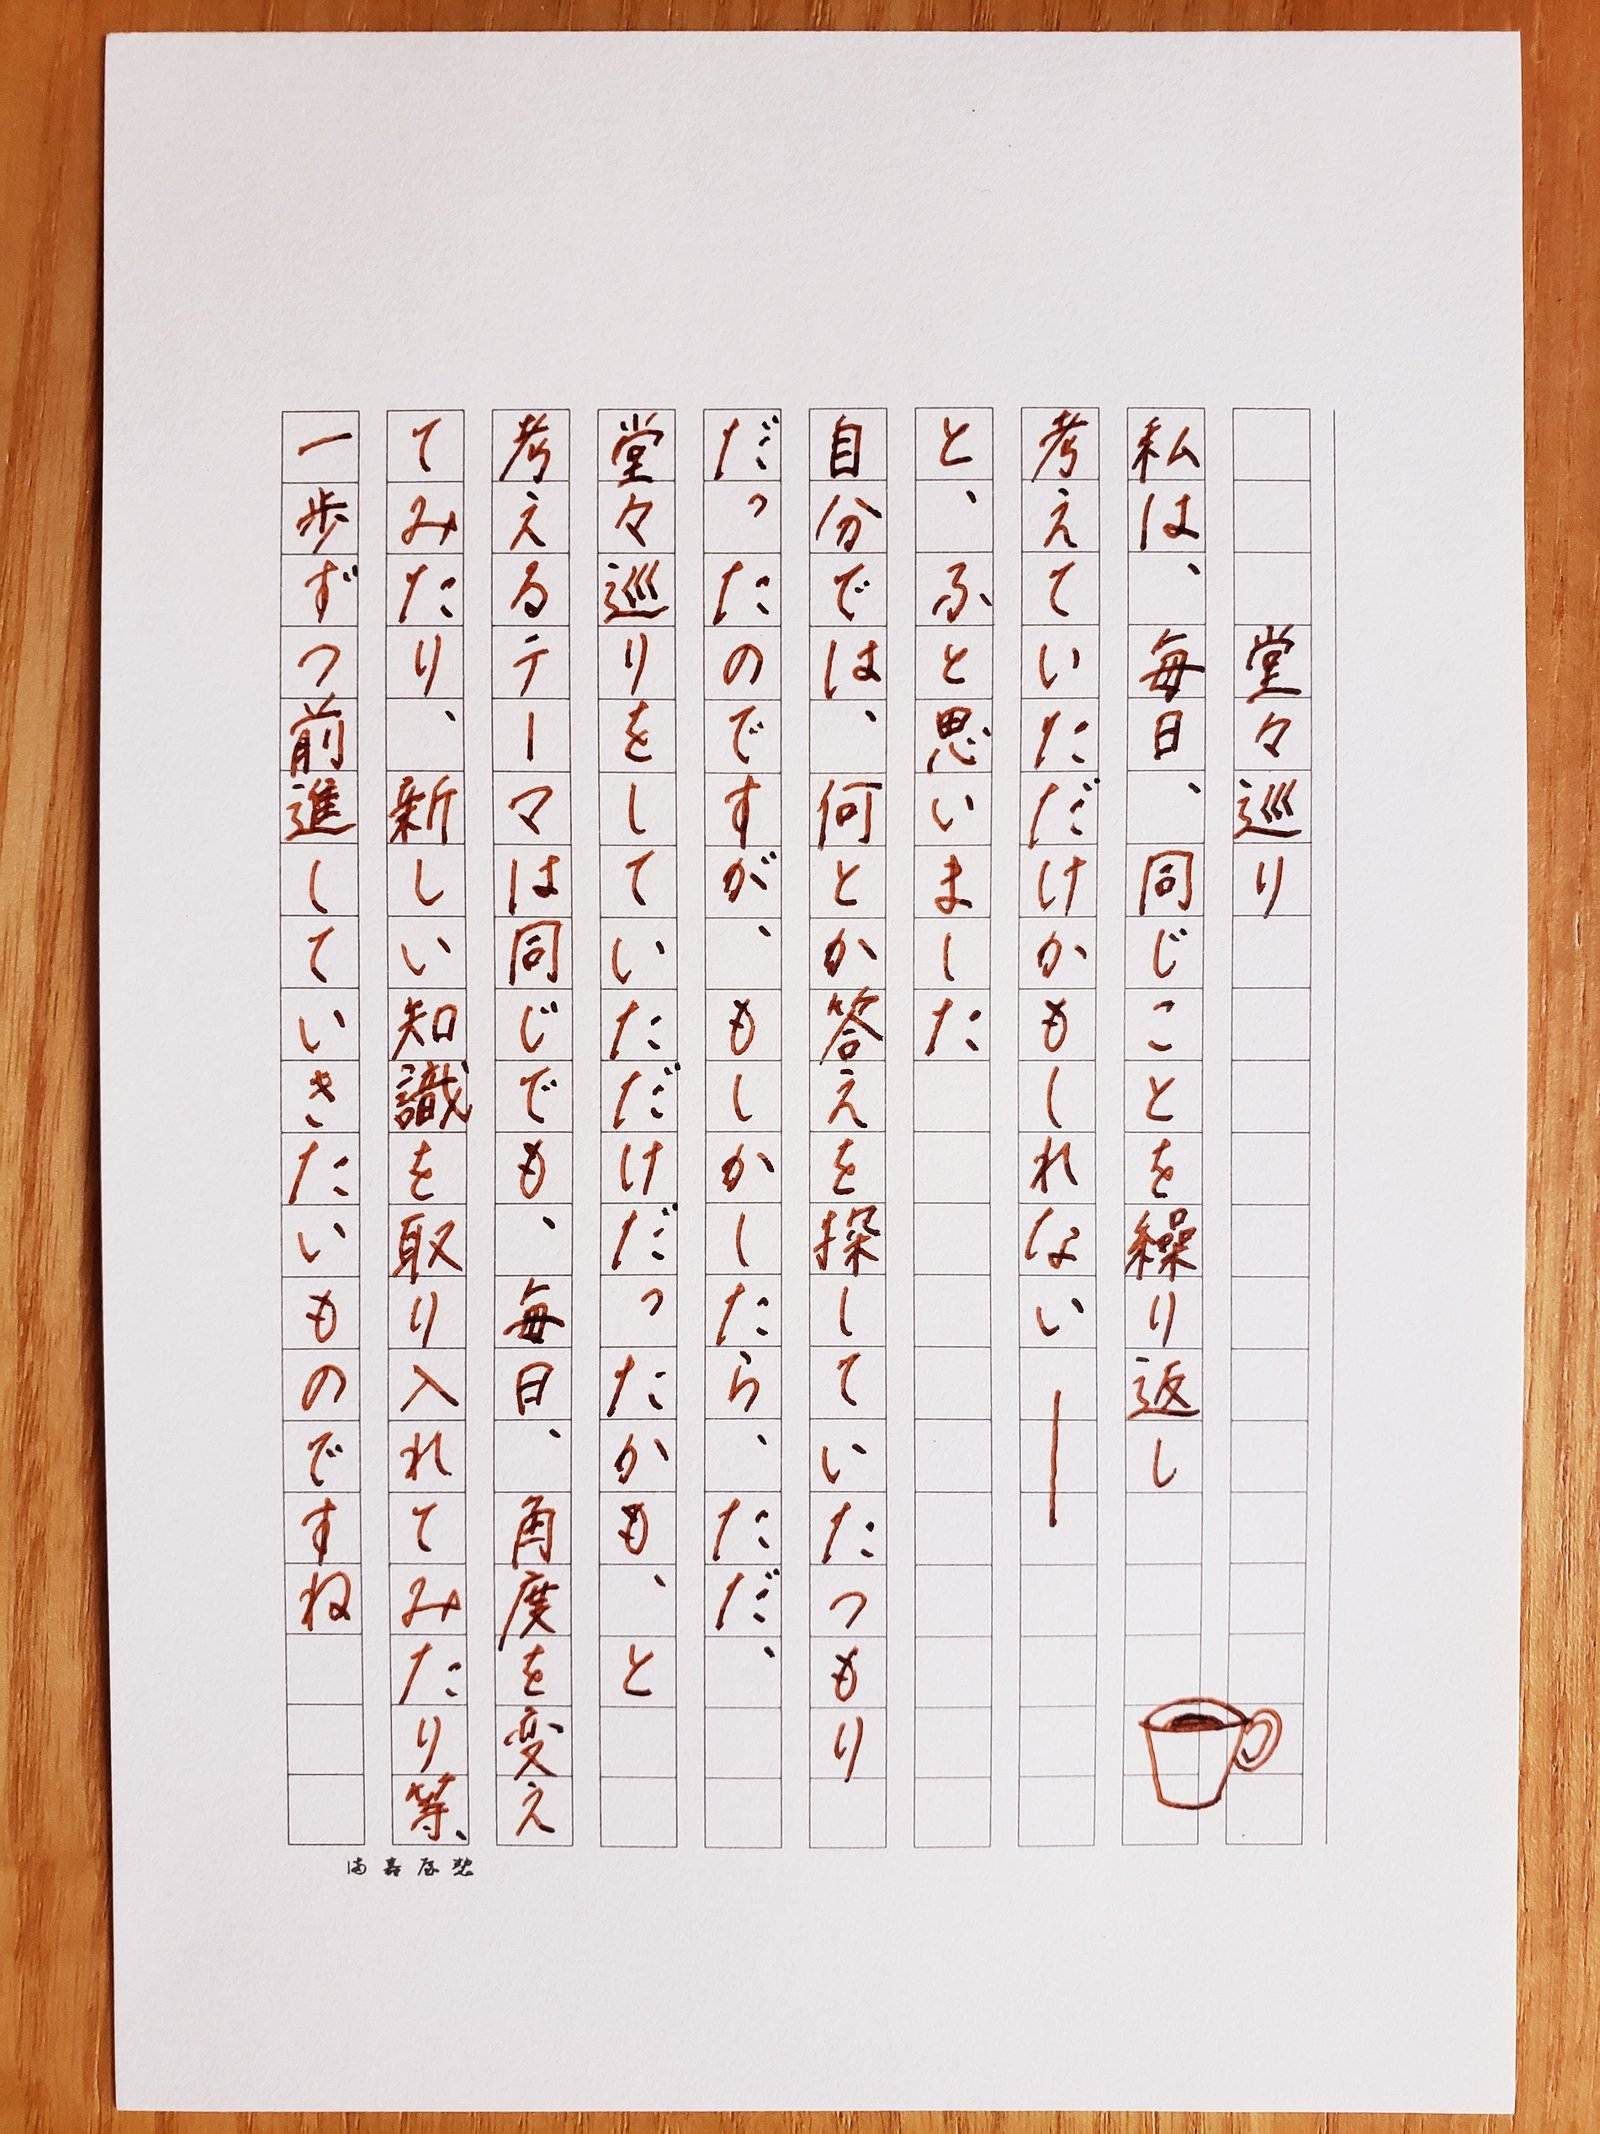 堂々巡り
私は、毎日、同じことを繰り返し
考えていただけかもしれない――
と、ふと思いました
自分では、何とか答えを探していたつもり
だったのですが、もしかしたら、ただ、
堂々巡りをしていただけだったかも、と
考えるテーマは同じでも、毎日、角度を変え
てみたり、新しい知識を取り入れてみたり等、
一歩ずつ前進していきたいものですね